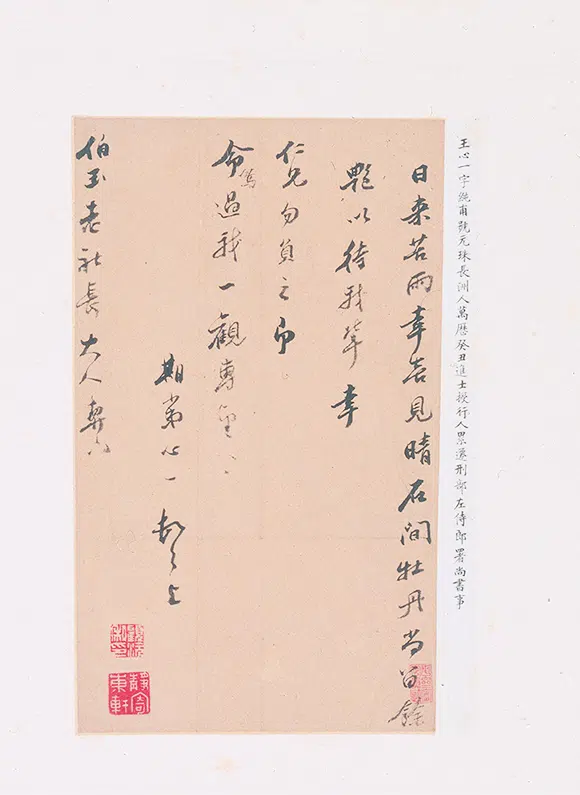 王心一字純甫號元珠長洲人萬曆癸丑進士授行人累遷刑部左侍郎署尚書事
日來苦雨幸喜見晴石間牡丹尚留餘
艷以待我輩幸
仁兄勿負之即
命駕過我一觀專望〻〻
期弟心一頓首上
伯玉老社長大人
靜寄東軒